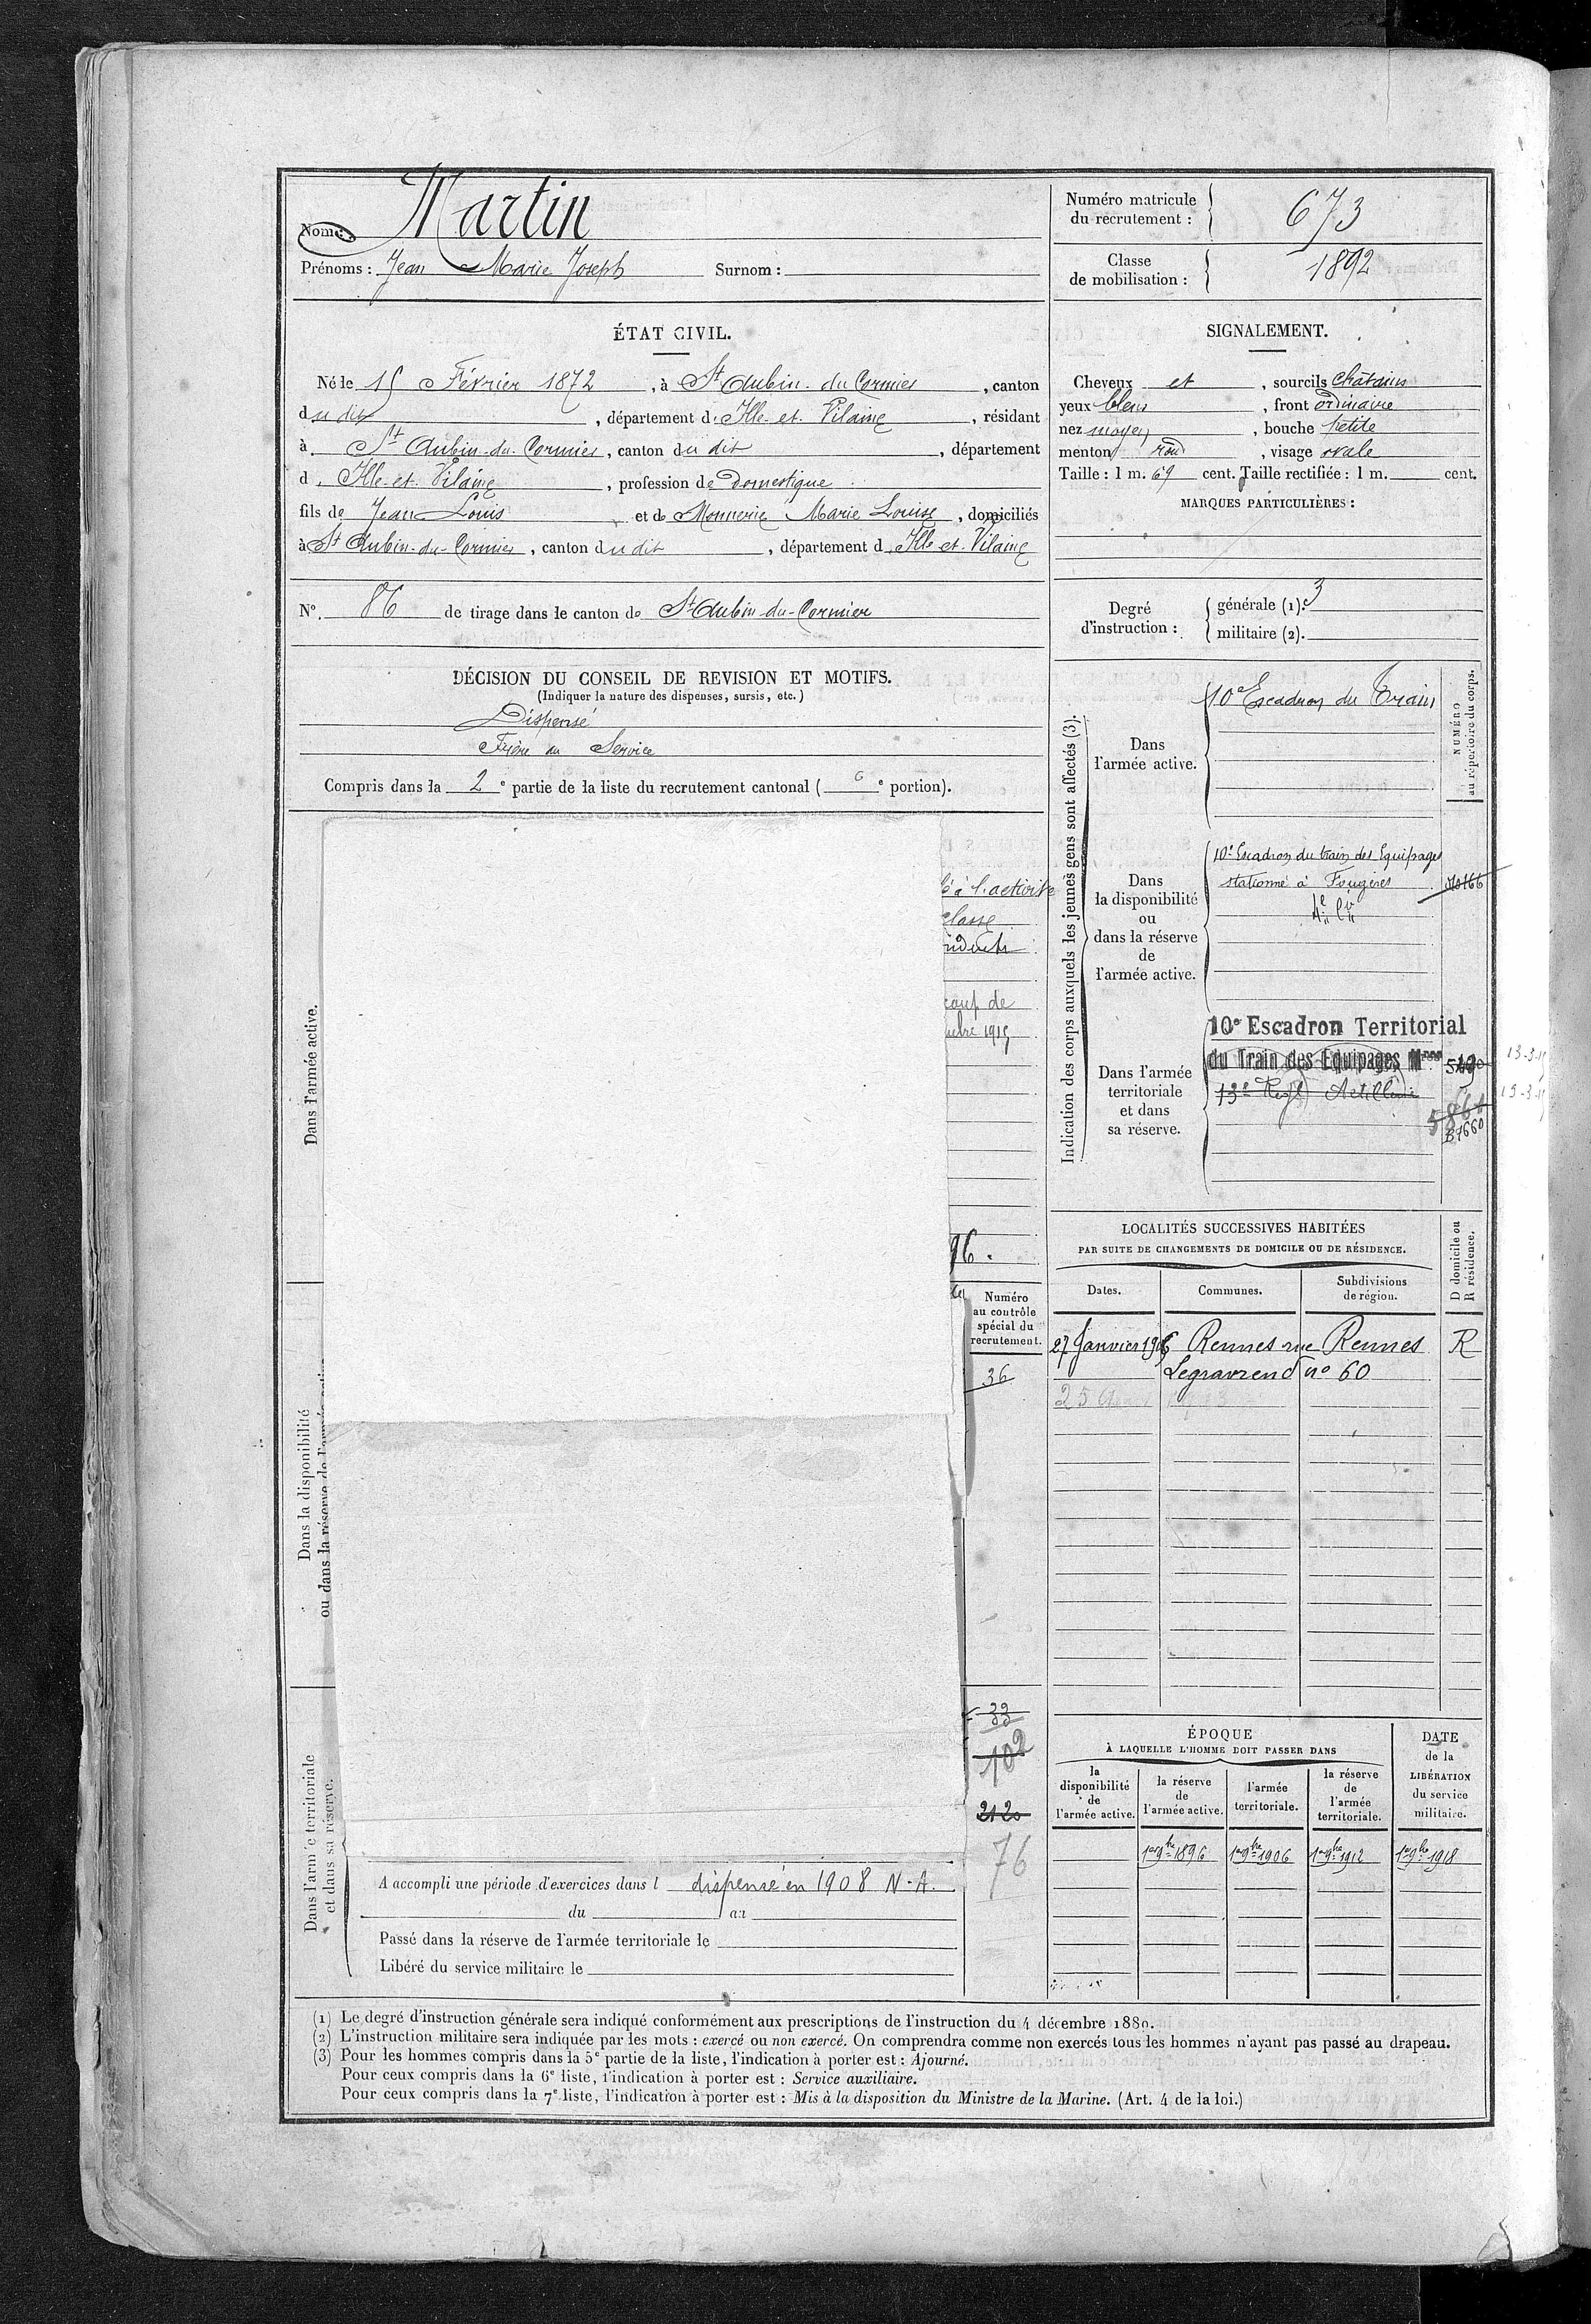 Nom : Martin
Prénoms : Jean Marie Joseph Surnom :
Numéro matricule du recrutement : 673
Classe de mobilisation : 1892
ÉTAT CIVIL.
Né le 15 Février 1872, à St Aubin-du Cormier, canton
du dit, département d. Ille-et-Vilaine, résidant
à St Aubin-du-Cormier, canton du dit, département
d. Ille-et-Vilaine, profession de Domestique
fils de Jean Louis et de Monnerie Marie Louise, domiciliés
à St Aubin-du-Cormier, canton du dit, département d. Ille-et-Vilaine
N°. 86 de tirage dans le canton de St Aubin-du-Cormier
DÉCISION DU CONSEIL DE REVISION ET MOTIFS.
(Indiquer la nature des dispenses, sursis, etc.)
Dispensé
Frère au Service
Compris dans la 2e partie de la liste du recrutement cantonal ( e portion).
SIGNALEMENT.
Cheveux et, sourcils châtains
yeux bleus, front ordinaire
nez moyen, bouche petite
menton rond, visage ovale
Taille : 1 m. 69 cent. Taille rectifiée : 1 m. cent.
MARQUES PARTICULIÈRES :
Degré d'instruction :
générale (1). 3
militaire (2).
Indication des corps auxquels les jeunes gens sont affectés (3).
NUMÉRO au répertoire du corps.
Dans l'armée active.
10e Escadron du Train
Dans la disponibilité ou dans la réserve de l'armée active.
10e Escadron du train des Equipages
stationné à Fougères
Dans l'armée territoriale et dans sa réserve.
10e Escadron Territorial
du Train des Equipages Mres
13e Regt Artillerie
5861
B7660
13-3-15
15-3-15
Dans l'armée active.
é à l'activité
classe
coup de
1915
96.
Dans la disponibilité
ou dans la réserve de l'armée active
Numéro
au contrôle
spécial du
recrutement.
36
Dans l'armée territoriale
et dans sa réserve.
33
102
2120
76
A accompli une période d'exercices dans l dispensé en 1908 N-A.
du au
Passé dans la réserve de l'armée territoriale le
Libéré du service militaire le
LOCALITÉS SUCCESSIVES HABITÉES
PAR SUITE DE CHANGEMENTS DE DOMICILE OU DE RÉSIDENCE.
D domicile ou
R résidence.
Dates. Communes. Subdivisions de région.
27 Janvier 1906 Rennes rue Rennes R
Legraverend no 60
ÉPOQUE
À LAQUELLE L'HOMME DOIT PASSER DANS
la disponibilité de l'armée active.
la réserve de l'armée active.
l'armée territoriale.
la réserve de l'armée territoriale.
DATE de la LIBÉRATION du service militaire.
1er 9bre 1896 1er 9bre 1906 1er 9bre 1912 1er 9bre 1918
(1) Le degré d'instruction générale sera indiqué conformément aux prescriptions de l'instruction du 4 décembre 1889.
(2) L'instruction militaire sera indiquée par les mots : exercé ou non exercé. On comprendra comme non exercés tous les hommes n'ayant pas passé au drapeau.
(3) Pour les hommes compris dans la 5e partie de la liste, l'indication à porter est : Ajourné.
Pour ceux compris dans la 6e liste, l'indication à porter est : Service auxiliaire.
Pour ceux compris dans la 7e liste, l'indication à porter est : Mis à la disposition du Ministre de la Marine. (Art. 4 de la loi.)